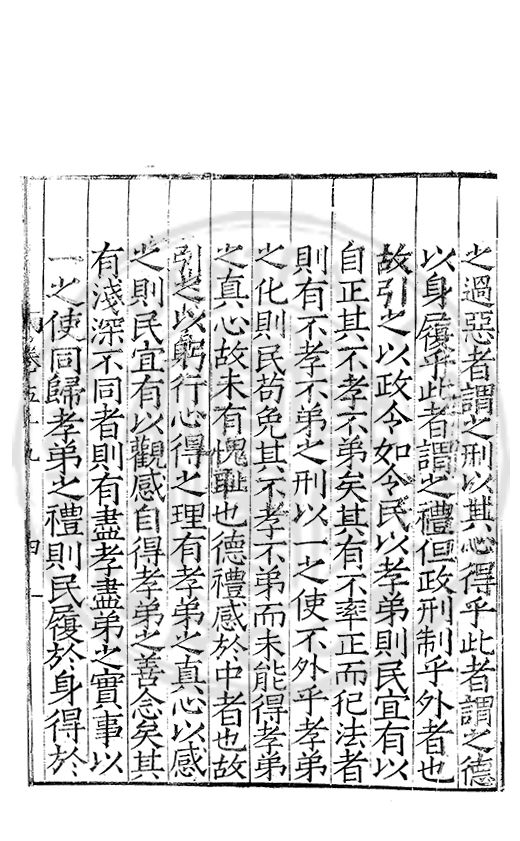 之過惡者謂之刑以其心得乎此者謂之德
以身履乎此者謂之禮但政刑制乎外者也
故引之以政令如令民以孝弟則民宜有以
自正其不孝不弟矣其有不率正而犯法者
則有不孝不弟之刑以一之使不外乎孝弟
之化則民苟免其不孝不弟而未能得孝弟
之真心故未有愧耻也德禮感於中者也故
引之以躬行心得之理有孝弟之真心以感
之則民宜有以觀感自得孝弟之善念矣其
有淺深不同者則有盡孝盡弟之實事以
一之使同歸孝弟之禮則民履於身得於
卷五十九 四